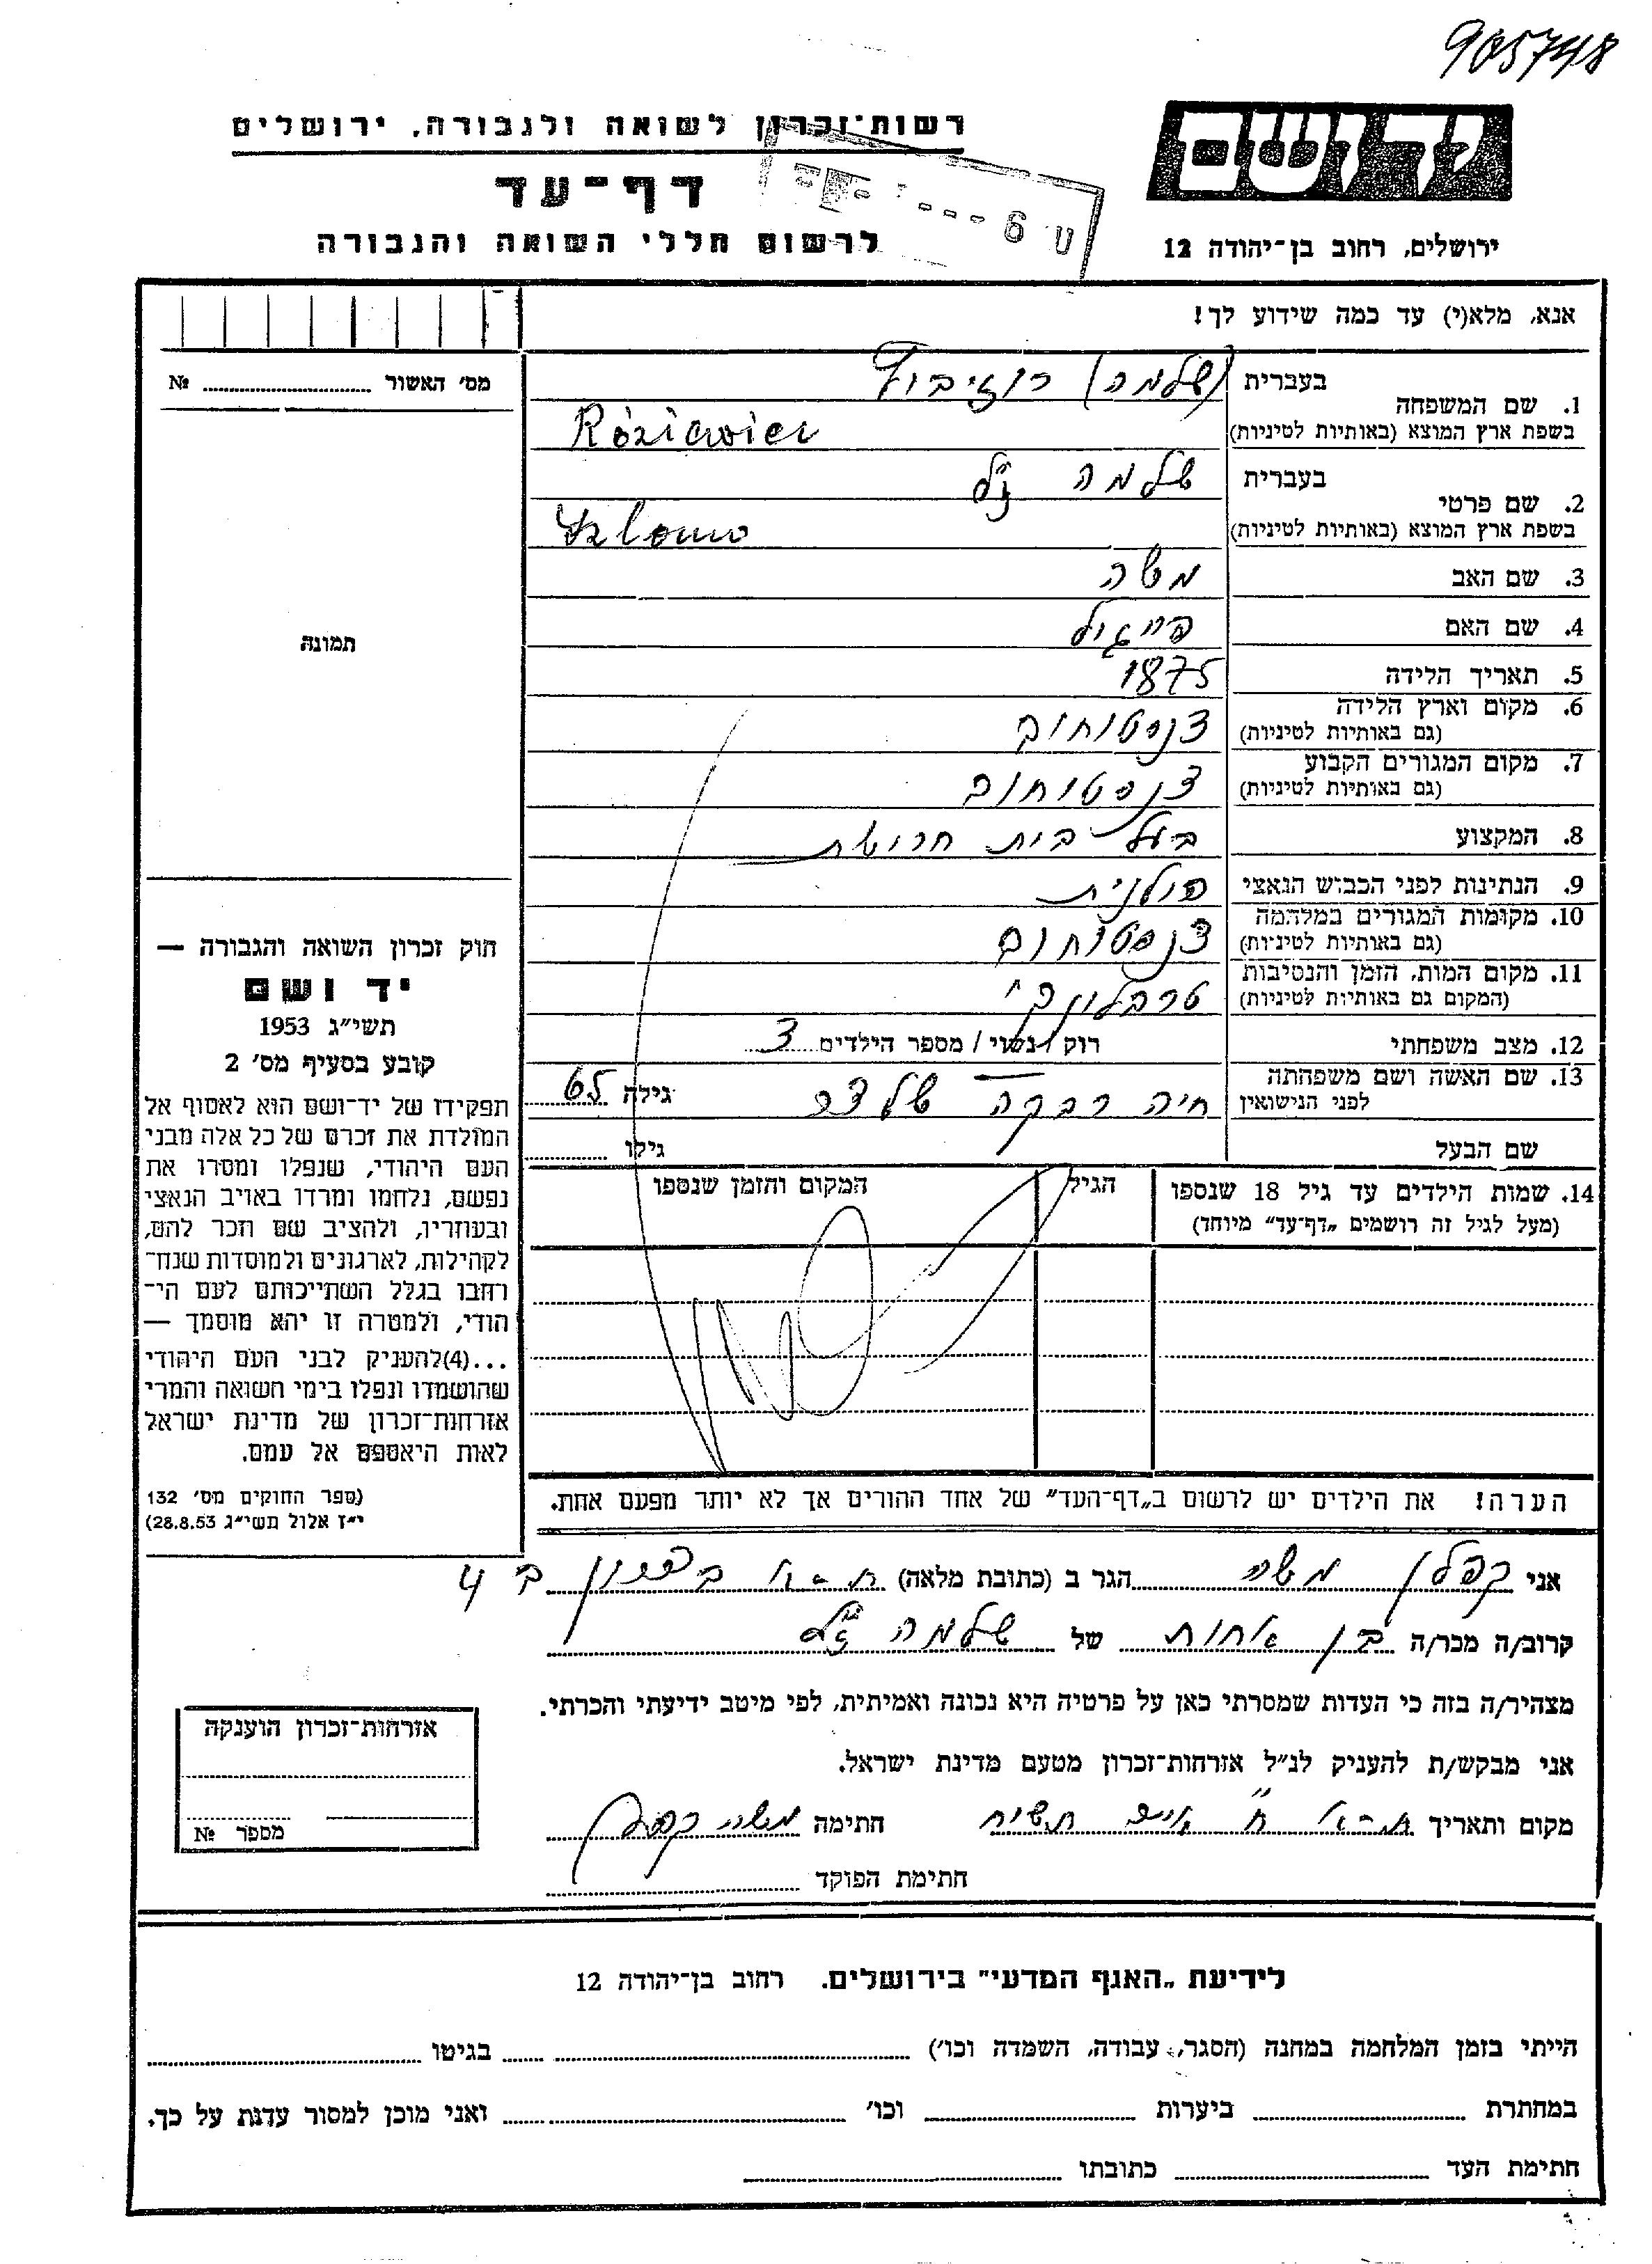 905748
רשות־זכרון לשואה ולגבורה, ירושלים
דף־עד
לרשום חללי השואה והגבורה
יד ושם
ירושלים, רחוב בן־יהודה 12
אנא, מלא(י) עד כמה שידוע לך!
מס׳ האשור № 
1. שם המשפחה
בעברית (שלמה)
בשפת ארץ המוצא (באותיות לטיניות)
2. שם פרטי
בעברית שלמה ז"ל
בשפת ארץ המוצא (באותיות לטיניות) Szlomo
3. שם האב משה
4. שם האם פייגיל
5. תאריך הלידה 1875
6. מקום וארץ הלידה צנסטוחוב
(גם באותיות לטיניות)
7. מקום המגורים הקבוע צנסטוחוב
(גם באותיות לטיניות)
8. המקצוע בעל בית חרושת
9. הנתינות לפני הכבוש הנאצי פולנית
10. מקומות המגורים במלחמה צנסטוחוב
(גם באותיות לטיניות)
11. מקום המות, הזמן והנסיבות טרבלינקי
(המקום גם באותיות לטיניות)
12. מצב משפחתי רווק / נשוי / מספר הילדים 3
13. שם האשה ושם משפחתה
לפני הנישואין חיה רבקה גילה 65
שם הבעל גילו
14. שמות הילדים עד גיל 18 שנספו
(מעל לגיל זה רושמים „דף־עד״ מיוחד)
הגיל
המקום והזמן שנספו
הערה! את הילדים יש לרשום ב„דף־העד״ של אחד ההורים אך לא יותר מפעם אחת.
תמונה
חוק זכרון השואה והגבורה —
יד ושם
תשי״ג 1953
קובע בסעיף מס׳ 2
תפקידו של יד־ושם הוא לאסוף אל
המולדת את זכרם של כל אלה מבני
העם היהודי, שנפלו ומסרו את
נפשם, נלחמו ומרדו באויב הנאצי
ובעוזריו, ולהציב שם וזכר להם,
לקהילות, לארגונים ולמוסדות שנח־
רחבו בגלל השתייכותם לעם הי־
הודי, ולמטרה זו יהא מוסמך —
...(4)להעניק לבני העם היהודי
שהושמדו ונפלו בימי השואה והמרי
אזרחות־זכרון של מדינת ישראל
לאות היאספם אל עמם.
(ספר החוקים מס׳ 132
י״ז אלול תשי״ג 28.8.53)
אני קפלן משה הגר ב (כתובת מלאה) ת-א
קרוב/ה מכר/ה בן אחות של שלמה ז"ל
מצהיר/ה בזה כי העדות שמסרתי כאן על פרטיה היא נכונה ואמיתית, לפי מיטב ידיעתי והכרתי.
אני מבקש/ת להעניק לנ״ל אזרחות־זכרון מטעם מדינת ישראל.
מקום ותאריך חתימה משה קפלן
חתימת הפוקד
אזרחות־זכרון הוענקה
מספר №
לידיעת „האגף המדעי״ בירושלים. רחוב בן־יהודה 12
הייתי בזמן המלחמה במחנה (הסגר, עבודה, השמדה וכו׳) בגיטו
במחתרת ביערות וכו׳ ואני מוכן למסור עדות על כך.
חתימת העד כתובתו